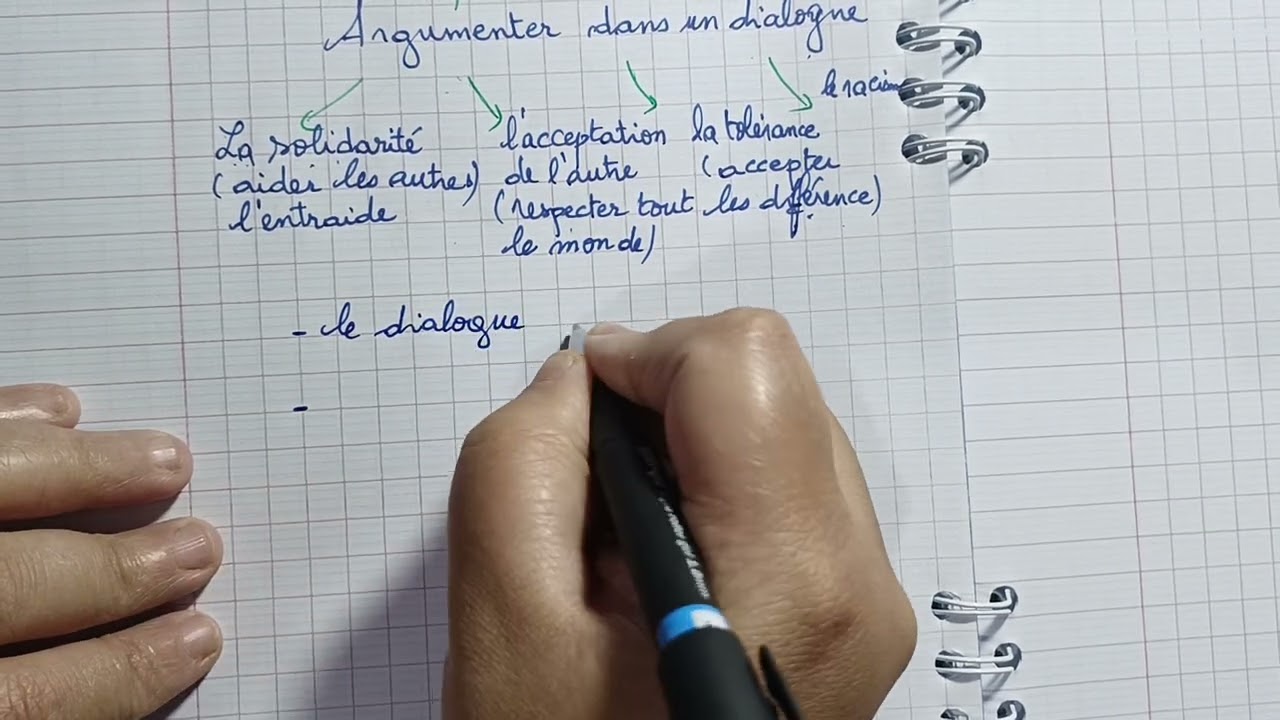 Argumenter dans un dialogue
le racism
La solidarité
(aider les autres)
l'entraide
l'acceptation
de l'autre
(respecter tout
le monde)
la tolérance
(accepter
les différence)
- le dialogue
-